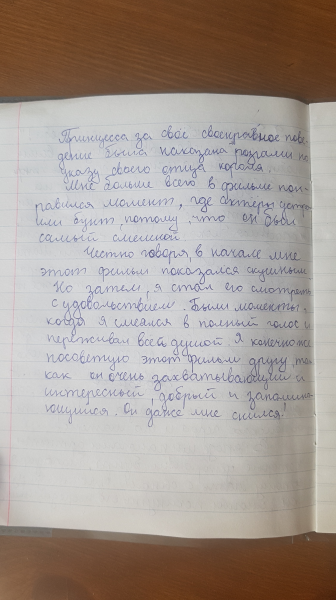 Принцесса за своё своенравное пове
дение была наказана розгами по
указу своего отца короля.
Мне больше всего в фильме пон-
равился момент, где актеры устро
или бунт, потому что он был
самый смешной.
Честно говоря, в начале мне
этот фильм показался скучным.
Но затем, я стал его смотреть
с удовольствием. Были моменты
когда я смеялся в полный голос и
переживал всей душой. Я конечно же
посоветую этот фильм другу так
как он очень захватывающий и
интересный, добрый и запомина-
ющийся. Он даже мне снился!